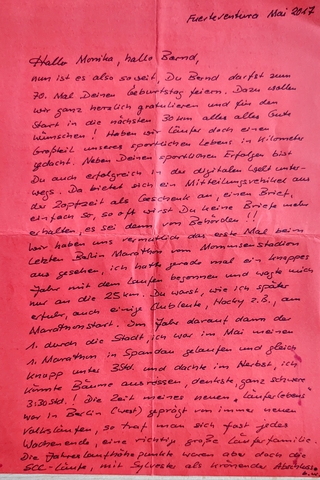 Fuerteventura Mai 2017
Hallo Monika, hallo Bernd,
nun ist es also soweit, Du Bernd darfst zum
70. Mal Deinen Geburtstag feiern. Dazu wollen
wir ganz herzlich gratulieren und für den
Start in die nächsten 30 km alles alles Gute
wünschen! Haben wir Läufer doch einen
Großteil unseres sportlichen Lebens in Kilometer
gedacht. Neben Deinen sportlichen Erfolgen bist
Du auch erfolgreich in der digitalen Welt unter-
wegs. Da bietet sich ein Mitteilungsvehikel aus
der Zopfzeit als Geschenk an, einen Brief,
einfach so, so oft wirst Du keine Briefe mehr
erhalten, es sei denn von Behörden!!
Wir haben uns vermutlich das erste Mal beim
letzten Berlin Marathon vom Mommsenstadion
aus gesehen, ich hatte gerade mal ein knappes
Jahr mit dem Laufen begonnen und wagte mich
nur an die 25 km. Du warst, wie ich später
erfuhr, auch einige Clubleute, Hacky z.B., am
Marathonstart. Im Jahr darauf dann der
1. durch die Stadt, ich war im Mai meinen
1. Marathon in Spandau gelaufen und gleich
knapp unter 3Std. und dachte im Herbst, ich
könnte Bäume ausrossen, denkste, ganz schwere
3:30 Std.! Die Zeit meines neuen "Läuferlebens"
war in Berlin (West) geprägt von immer neuen
Volksläufen, so traf man sich fast jedes
Wochenende, eine richtig große Läuferfamilie.
Die Jahreslaufhöhepunkte waren aber doch die
SCC-Läufe, mit Sylvester als krönender Abschluss